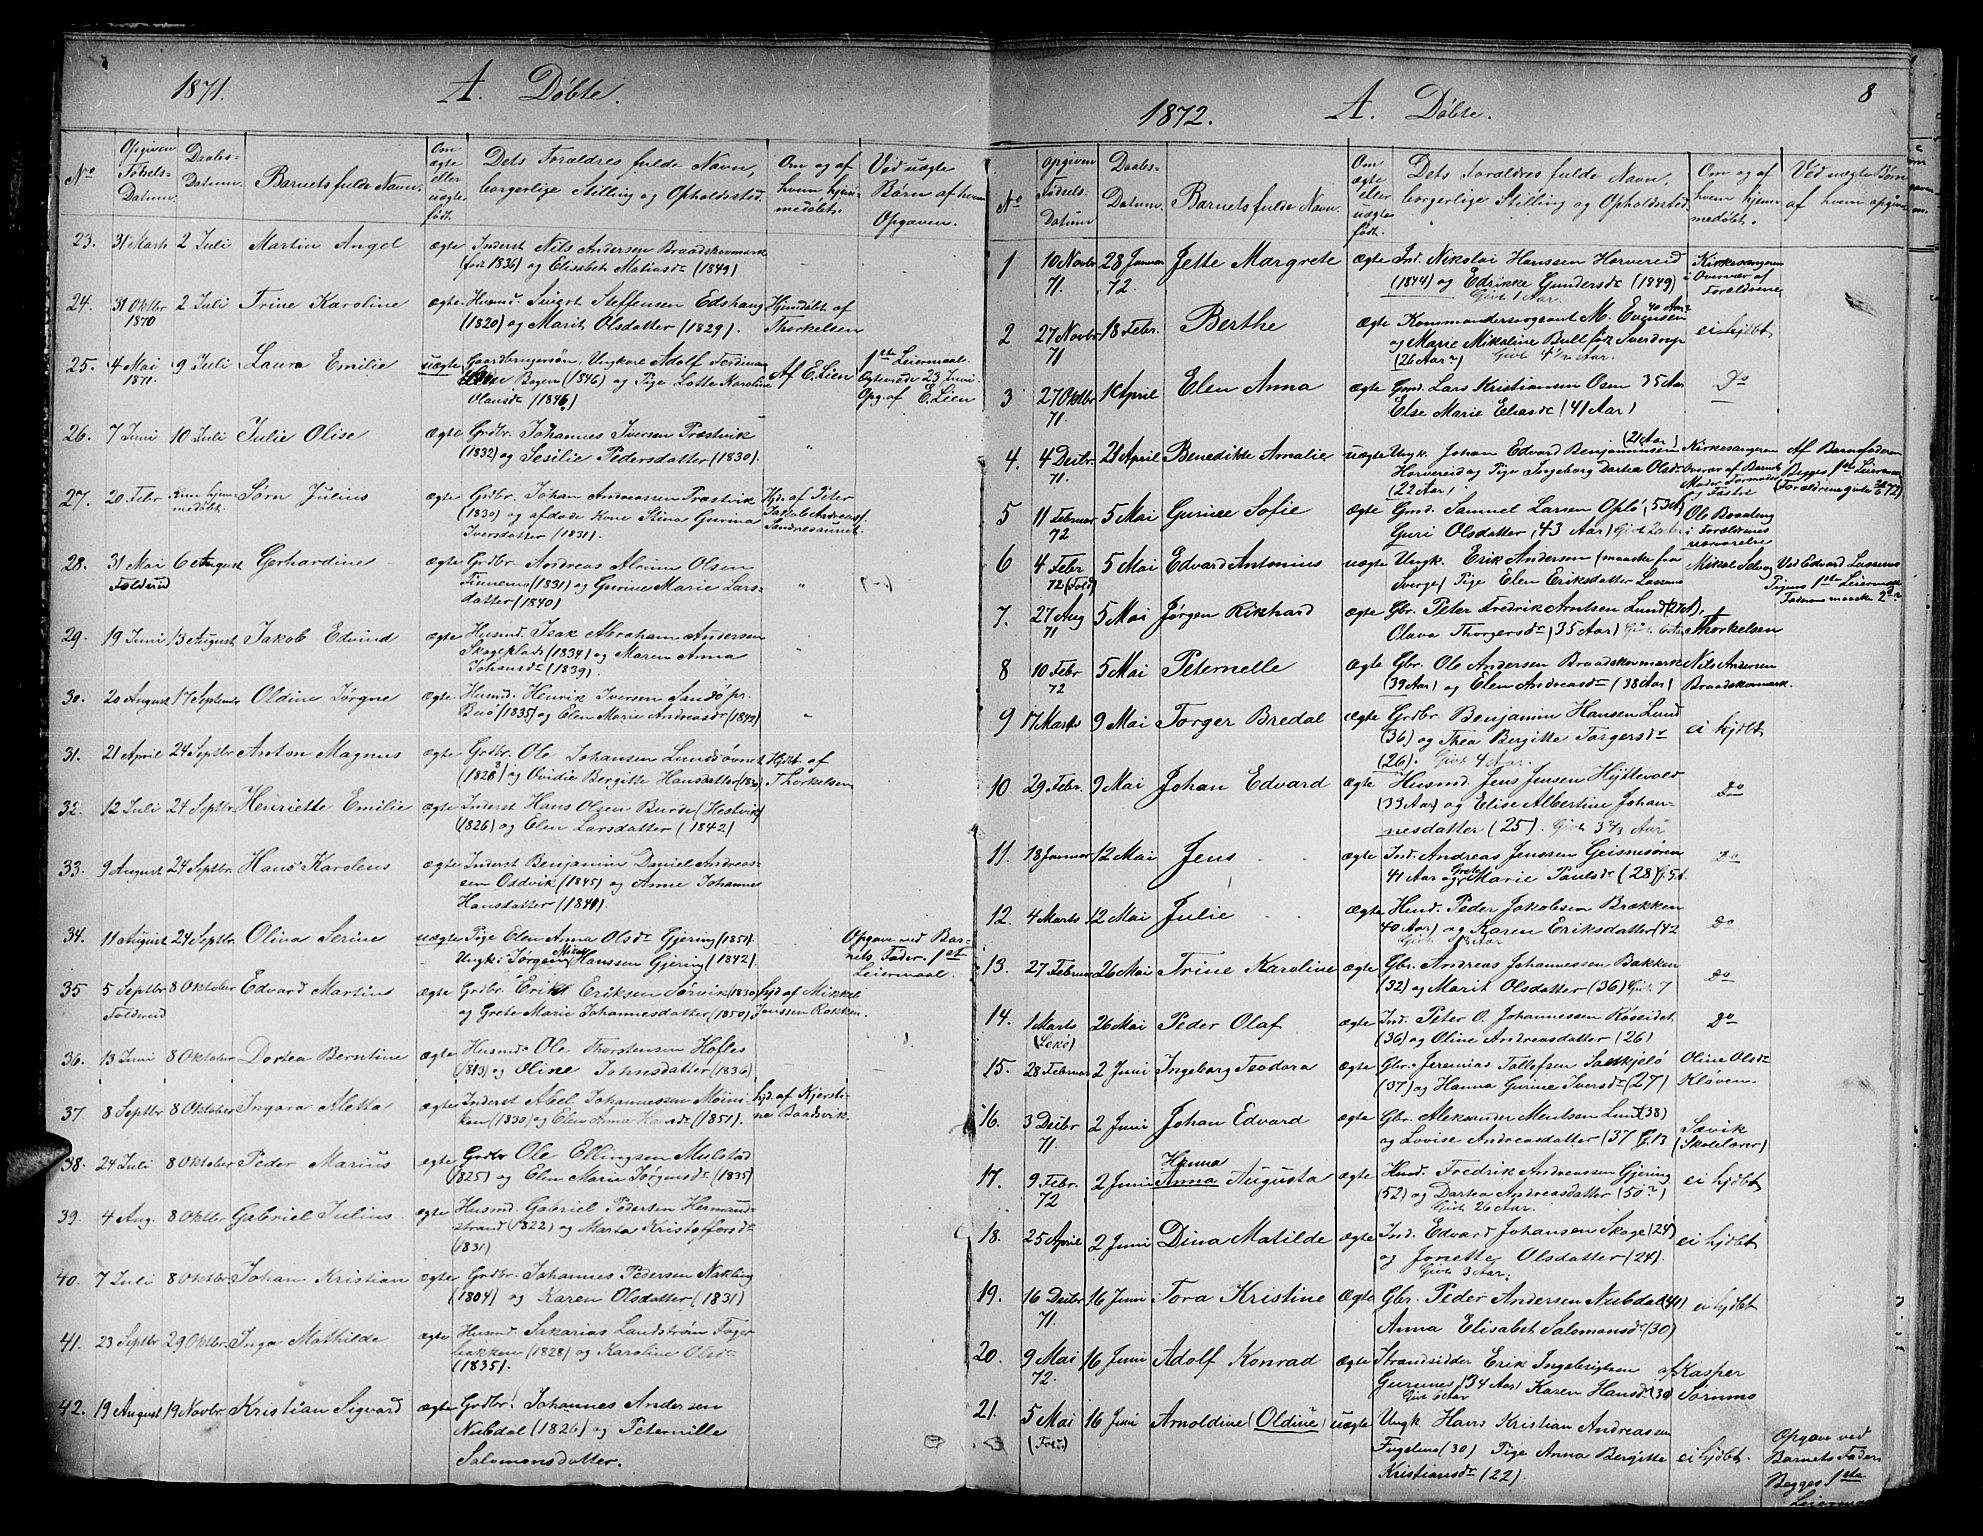 1871. A. Døbte.
No
Opgiven Fødsels-Datum.
Daabs-Datum.
Barnets fulde Navn.
Om ægte eller uægte født.
Dets Forældres fulde Navn, borgerlige Stilling og Opholdssted.
Om og af hvem hjemmedøbt.
Ved uægte Børn af hvem Opgaven.
23. 31 Marts 2 Juli Martin Angel ægte Inderst Nils Andersen Braadskovmark
(født 1836) og Elisabet Matiasdr (1849)
24. 31 Oktbr 2 Juli Trine Karoline ægte Husmd. Sivert Steffensen Edshaug Hjmdøbt af
1870 (1820) og Marit Olsdatter (1829). Thorkelsen
25. 4 Mai 9 Juli Laura Emilie uægte Gaardbrugersøn, Ungkarl Adolf Ferdinan Af E. Lien 1ste Leiermaal.
1871. Bogen (1846) og Pige Lotte Karoline Ægteviede 23 Juni.
Olausdr (1846) Opg. af E. Lien
26. 7 Juni 10 Juli Julie Olise ægte Grdbr. Johannes Iversen Præstvik "
(1832) og Sesilie Pedersdatter (1830).
27. 20 Febr Kun hjemmedøbt. Sørn Julius ægte Grdbr. Johan Andreassen Præstvik Hjd. af Peter
(1830) og afdøde Kone Stina Gurina Jakob Andreass.
Iversdatter (1831). Sandresaunet.
28. 31 Mai 6 August Gerhardine ægte Grdbr. Andreas Alvim Olsen
Foldereid Finnemo (1831) og Gurine Marie Lars- "
datter (1840)
29. 19 Juni 13 August Jakob Edvind ægte Husmd. Isak Abraham Andersen
Skageplads (1834) og Maren Anna "
Johansdr (1839).
30. 20 August 17 September Oldine Jørgine ægte Husmd. Henrik Iversen Sandø pr.
(1835) og Elen Marie Andreasdr (1842) "
31. 21 April 24 Septbr Anton Magnus ægte Grdbr. Ole Johansen Lundsøvnet Hjdbt. af
(1828) og Ovidie Bergitte Hansdatter Thorkelsen
32. 12 Juli 24 Septbr Henriette Emilie ægte Inderst Hans Olsen Burde (Hestvik)
(1826) og Elen Larsdatter (1842)
33. 9 August 24 Septbr. Hans Karolius ægte Inderst Benjamin Daniel Andreas-
sen Oddvik (1845) og Anne Johanne
Hansdatter (1841).
34. 11 August 24 Septbr. Oliva Serine uægte Pige Elen Anna Olsdr Gjering (1851). Opgave ved Bar-
Ungk. Jørgen Hanssen Gjering (1842). nets Fader. 1ste
Leiermaal.
35 5 Septbr 8 Oktober Edvard Martin ægte Grdbr. Erik Eriksen Sørvik (1830) hjd af Mikkel
Foldereid og Grete Marie Johannesdatter (1850) Jonssen Kokken.
36. 13 Juni 8 Oktober Dortea Berntine ægte Husmd. Ole Thorstensen Hofles
(1813) og Oline Johnsdatter (1836)
37. 8 Septbr 8 Oktober Ingara Aletta ægte Inderst Abel Johannessen Moini hjd. af Kjersti-
ken (1830) og Elen Anna Hansdr (1851). ne Baadsvik.
38. 24 Juli 8 Oktober Peder Marius ægte Grdbr Ole Ellingsen Mulstad
(1825) og Elen Marie Jørgensdr (1835)
39. 4 Aug. 8 Oktbr Gabriel Julius. ægte Husmd. Gabriel Pedersen Hermand-
strand (1822) og Marta Kristoffersdr
(1831)
40. 7 Juli 8 Oktbr. Johan Kristian ægte Grdbr. Johannes Pedersen Nakling
(1804) og Karen Olsdatter (1831)
41. 23 Septbr 29 Oktbr. Inga Mathilde ægte Husmd. Sakarias Landstrøm Fager
bakken (1828) og Karoline Olsdr
(1835).
42. 19 August 19 Novbr. Kristian Sigvard ægte Grdbr. Johannes Andersen
Nubdal (1826) og Peternille
Salomonsdatter.
1872. A. Døbte. 8
No
Opgiven Fødsels-Datum
Daabs-Datum.
Barnets fulde Navn.
Om ægte eller uægte født.
Dets Forældres fulde Navn, borgerlige Stilling og Opholdssted.
Om og af hvem hjemmedøbt.
Ved uægte Børn af hvem opgiven
1 10 Novbr 28 Januar Jette Margrete ægte Ind. Nikolai Hanssen Horvereid Kirkesangeren
71. 72. (1844) og Edrikke Gundersdr (1849) i Overvær af
Givt 1 Aar. Forældrene
2 27 Novbr 18 Febr. Berthe ægte Kommandersergeant M. Evensen 40 Aar
71 og Marie Mikaline Bull født Sverdrup ei hjdbt
(26 Aar) Givt 4½ Aar.
3 27 Oktbr 1 April Elen Anna ægte Gmd. Lars Kristiansen Osen 35 Aar Do
71. Else Marie Eliasdr (41 Aar)
4. 4 Decbr. 21 April Benedikte Amalie uægte Ungk. Johan Edvard Benjaminsen (21 Aar) Kirkesangeren Af Barnefaderen
71. Horvereid og Pige Ingeborg Dortea Olsdr. Overvær af Barnets Begges 1ste Leiermaal
(22 Aar) Moder Formoder og Fastre (Forældrene givte
5 11 Februar 5 Mai Gurine Sofie ægte Gmd. Samuel Larsen Opló (53 A) Ole Braaleng
72 Guri Olsdatter (43 Aar) i Forældrenes nærværelse
6 4 Febr 5 Mai Edvard Antonius uægte Ungk. Erik Andersen (maaske fra Mikal Ved Edvard Lassemo
72 (Fold) Sverge) Pige Elen Eriksdatter Lassemo Pigens 1ste Leiermaal
Faderens maaske 2det
7. 27 Aug 5 Mai Jørgen Rikhard ægte Gbr. Peter Fredrik Arntsen Lund (27 A), Thorkelsen
71 Olava Thorgersdr (35 Aar)
8 10 Febr 5 Mai Peternelle ægte Gbr. Ole Andersen Braadskovmark Nils Andersen
72 (39 Aar) og Elen Andreasdr (38 Aar) Braadskovmark.
9 17 Marts 9 Mai Torger Bredal ægte Grdbr. Benjamin Hansen Lund ei hjdbt
(36) og Thea Bergitte Torgersdr
(26). Givt 4 Aar.
10 29 Febr. 9 Mai Johan Edvard ægte Husmd. Jens Jensen Hyttevold Do
(33 Aar) og Elise Albertine Johan-
nesdatter (25). Givt 3⅔ Aar
11. 18 Januar 12 Mai Jens ægte Ind. Andreas Jenssen Geisnesøren Do
41 Aar og Grete Marie Paulsdr (28)
12. 4 Marts 12 Mai Julie ægte Husd. Peder Jakobsen Brækken Do
40 Aar) og Karen Eriksdatter (42
Givt 18 Aar
13. 27 Februar 26 Mai Trine Karoline ægte Gbr. Andreas Johannessen Bakken Do
(32) og Marit Olsdatter (36) Givt 7
14. 1 Marts 26 Mai Peder Olaf ægte Ind. Peter O. Johannessen Roseidet Do
(Lekø) (36) og Oline Andreasdatter (26)
15. 28 Februar 2 Juni Ingeborg Teodora ægte Gbr. Jeremias Tollefsen Oline Olsdr
(37) og Hanna Gurine Iversdr (27) Kløven.
16. 3 Decbr 2 Juni Johan Edvard ægte Gbr. Aleksander Mentsen Lund (38) Sævik
71. og Lovise Andreasdatter (37 G. 13 (Skolelærer)
17. 9 Febr. 2 Juni Hanna Anna Augusta ægte Husd. Fredrik Andreassen Gjering ei hjdbt
72 (52) og Dortea Andreasdatter (50?)
Givt 26 Aar.
18. 25 April 2 Juni Dina Matilde ægte Ind. Edvard Johansen Skage (24) ei hjdbt
og Jonette Olsdatter (24).
Givt 3 Aar.
19. 16 Decbr 16 Juni Tora Kristine ægte Gbr. Peder Andersen Nubdal (41) ei hjdbt
71. Anna Elisabet Salomonsdr (30)
20. 9 Mai 16 Juni Adolf Konrad ægte Strandsidder Erik Ingebrigtsen af Kasper
72. Gursnes (34 Aar) Karen Hansdr (30 Sømme
Givt 6 Aar
21. 5 Mai 16 Juni Arnoldine (Oldine) uægte Ungk Hans Kristian Andreasen
(Fold.) Fugelmo (30) Pige Anna Bergitte ei hjdbt. Opgave ved
Kristiansdr (22). Barnets Fader
Begges 1ste
Leiermaal